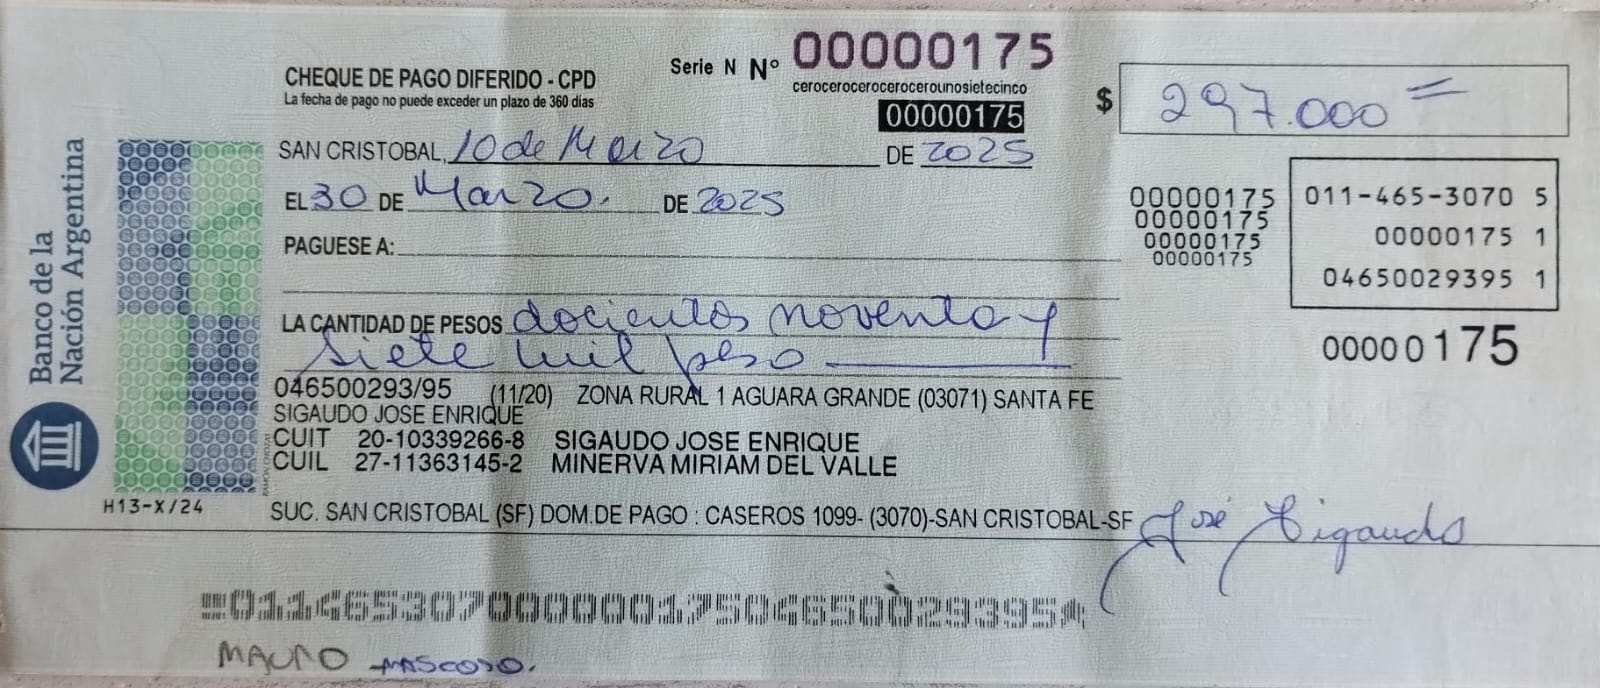 Banco de la
Nación Argentina
H13-X/24
CHEQUE DE PAGO DIFERIDO - CPD
La fecha de pago no puede exceder un plazo de 360 días
Serie N Nº 00000175
cerocerocerocerocerounosietecinco
00000175
$ 297.000 =
SAN CRISTOBAL, 10 de Marzo DE 2025
EL 30 DE Marzo. DE 2025
PAGUESE A:
00000175
00000175
00000175
00000175
011-465-3070 5
00000175 1
04650029395 1
00000175
LA CANTIDAD DE PESOS docientos noventa y
siete mil peso
046500293/95 (11/20) ZONA RURAL 1 AGUARA GRANDE (03071) SANTA FE
SIGAUDO JOSE ENRIQUE
CUIT 20-10339266-8 SIGAUDO JOSE ENRIQUE
CUIL 27-11363145-2 MINERVA MIRIAM DEL VALLE
SUC. SAN CRISTOBAL (SF) DOM.DE PAGO : CASEROS 1099- (3070)-SAN CRISTOBAL-SF
José Sigaudo
011465307000000017504650029395
MAURO MASCOSO.